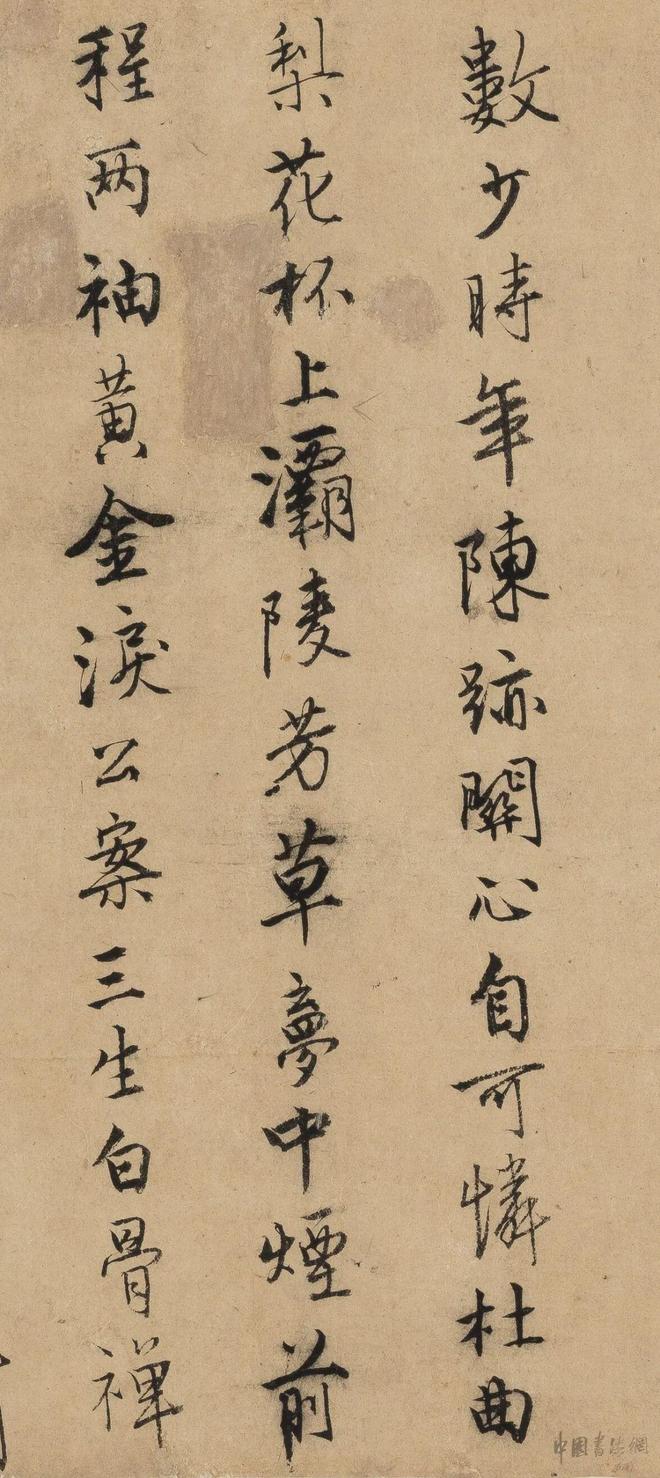 數少時年陳跡關心自可憐杜曲
梨花杯上灞陵芳草夢中煙前
程两袖黄金淚公案三生白骨禅
中國書法網